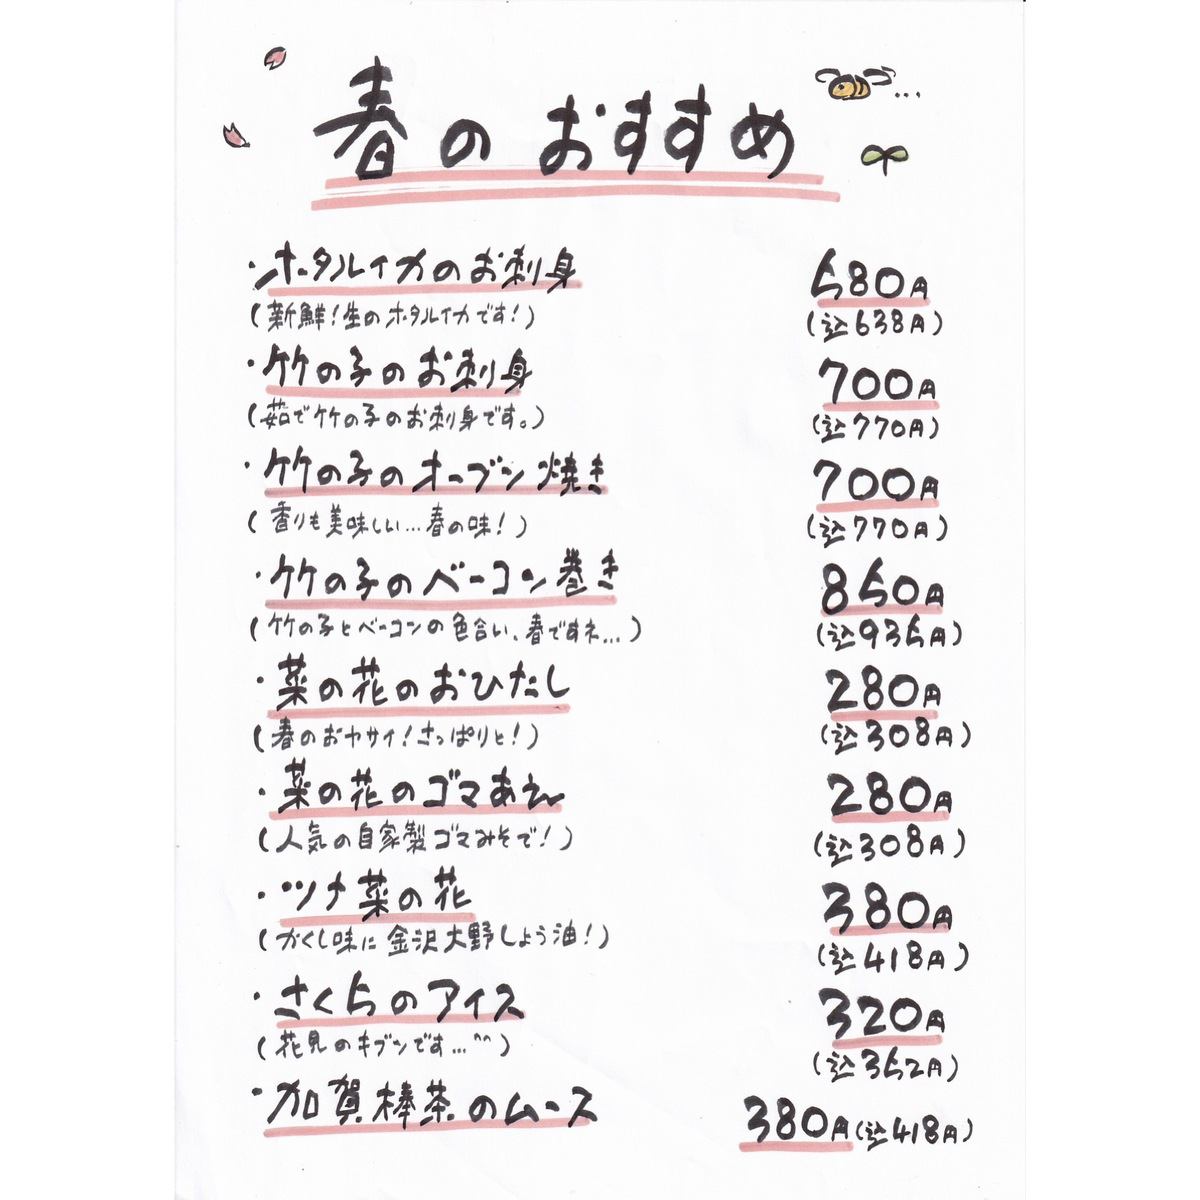 春のおすすめ
・ホタルイカのお刺身 580円
(新鮮!生のホタルイカです!) (込638円)
・竹の子のお刺身 700円
(茹で竹の子のお刺身です。) (込770円)
・竹の子のオーブン焼き 700円
(香りも美味しい…春の味!) (込770円)
・竹の子のベーコン巻き 850円
(竹の子とベーコンの色合い、春ですネ…) (込935円)
・菜の花のおひたし 280円
(春のおヤサイ!さっぱりと!) (込308円)
・菜の花のゴマあえ 280円
(人気の自家製ゴマみそで!) (込308円)
・ツナ菜の花 380円
(かくし味に金沢大野しょう油!) (込418円)
・さくらのアイス 320円
(花見のキブンです…^^) (込352円)
・加賀棒茶のムース 380円(込418円)